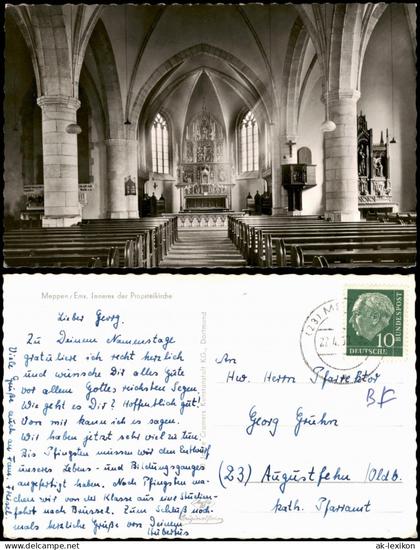 Meppen/Ems. Inneres der Propsteikirche
Lieber Georg.
Zu Deinem Namenstage
gratuliere ich recht herzlich
und wünsche Dir alles Gute
vor allem Gottes reichsten Segen.
Wie geht es Dir? Hoffentlich gut!
Von mir kann ich es sagen.
Wir haben jetzt sehr viel zu tun
Bis Pfingsten müssen wir den Entwurf
unseres Lebens- und Bildungsganges
angefertigt haben. Nach Pfingsten ma-
chen wir von der Klasse aus eine Studien-
fahrt nach Brüssel. Zum Schluß noch-
mals herzliche Grüße von Deinem
Hubertus
Viele Grüße auch an Frau
Cramers Kunstanstalt KG., Dortmund
(23) ME
22.4.5
10
BUNDESPOST
DEUTSCHE
An
Hw. Herrn Pfarrektor
Georg Gruhn
(23) Augustfehn / Oldb.
kath. Pfarramt
© www.ak-lexikon.de